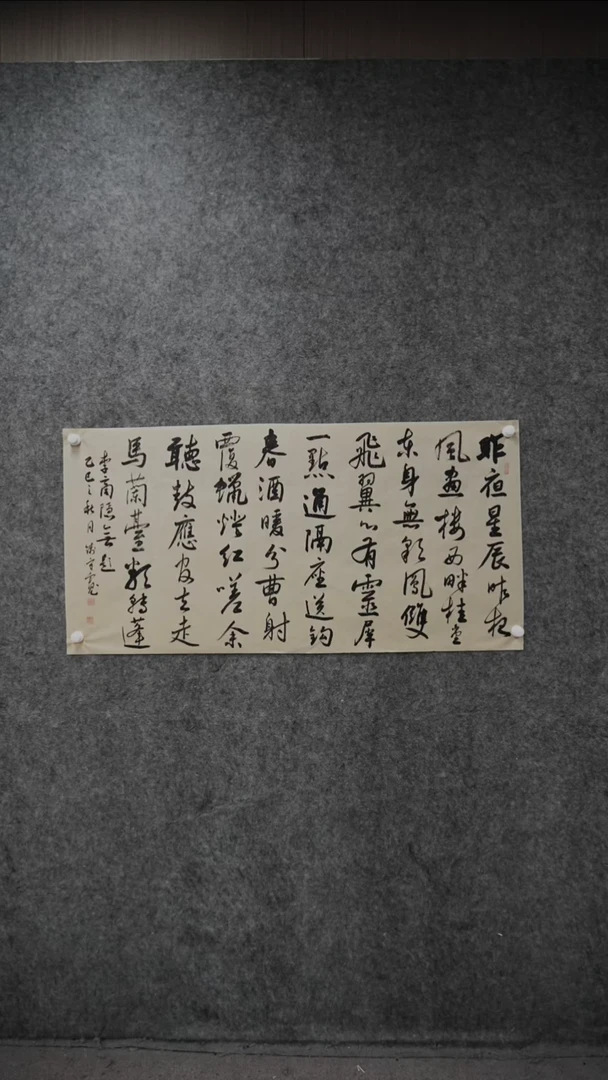 昨夜星辰昨夜
風畫楼西畔桂堂
东身無彩鳳雙
飛翼心有靈犀
一點通隔座送鈎
春酒暖分曹射
覆蠟燈红嗟余
聽鼓應官去走
馬蘭臺類轉蓬
李商隐無題
乙巳之秋月